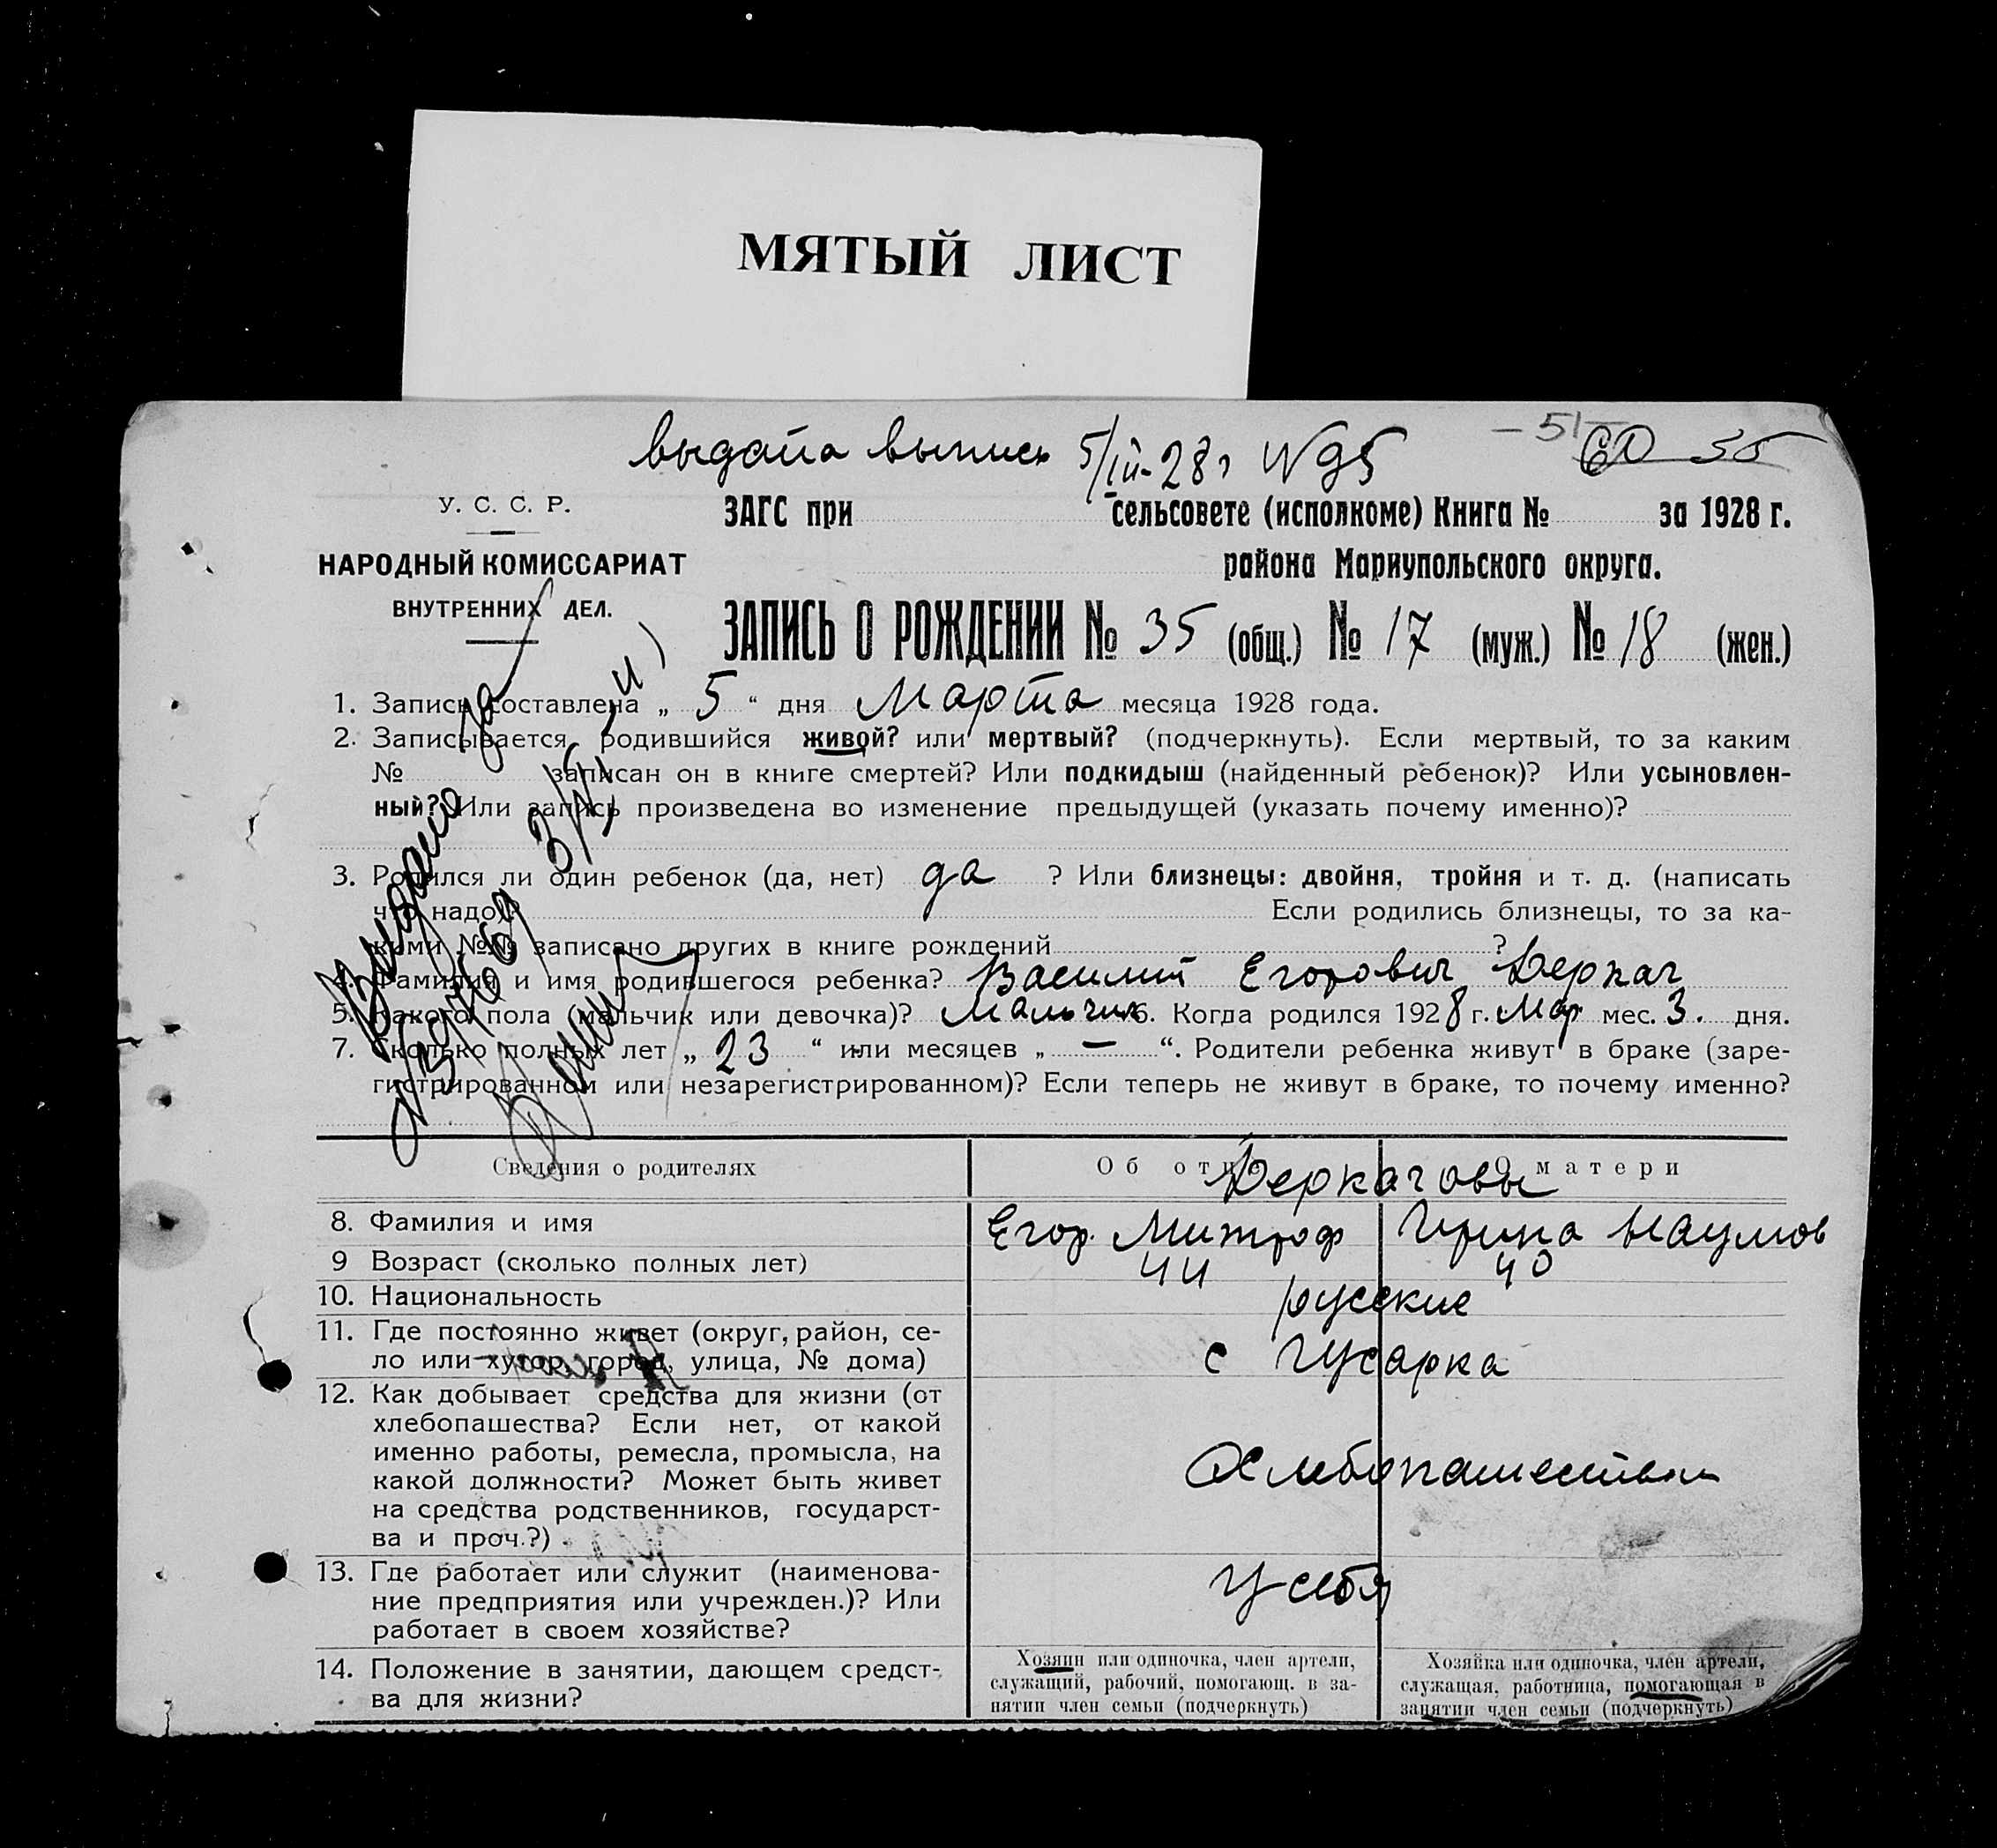 МЯТЫЙ ЛИСТ
— 51 —
выдата выпись 5/III-28 г № 95 55
У. С. С. Р.
НАРОДНЫЙ КОМИССАРИАТ
ВНУТРЕННИХ ДЕЛ.
ЗАГС при сельсовете (исполкоме) Книга № за 1928 г.
района Мариупольского округа.
ЗАПИСЬ О РОЖДЕНИИ № 35 (общ.) № 17 (муж.) № 18 (жен.)
1. Запись составлена „ 5 “ дня Марта месяца 1928 года.
2. Записывается родившийся живой? или мертвый? (подчеркнуть). Если мертвый, то за каким
№ записан он в книге смертей? Или подкидыш (найденный ребенок)? Или усыновлен-
ный? Или запись произведена во изменение предыдущей (указать почему именно)?
3. Родился ли один ребенок (да, нет) да ? Или близнецы: двойня, тройня и т. д. (написать
что надо)? Если родились близнецы, то за ка-
кими №№ записано других в книге рождений ?
4. Фамилия и имя родившегося ребенка? Василий Егорович Деркач
5. Какого пола (мальчик или девочка)? Мальчик 6. Когда родился 1928 г. Мар мес. 3. дня.
7. Сколько полных лет „ 23 “ или месяцев „ — “. Родители ребенка живут в браке (заре-
гистрированном или незарегистрированном)? Если теперь не живут в браке, то почему именно?
Сведения о родителях
Об отце
О матери
Деркачовы
8. Фамилия и имя
Егор. Митроф
Ирина Наумов
9 Возраст (сколько полных лет)
44
40
10. Национальность
русские
11. Где постоянно живет (округ, район, се-
ло или хутор, город, улица, № дома)
с Гусарка
12. Как добывает средства для жизни (от
хлебопашества? Если нет, от какой
именно работы, ремесла, промысла, на
какой должности? Может быть живет
на средства родственников, государст-
ва и проч.?)
Хлебопашеством
13. Где работает или служит (наименова-
ние предприятия или учрежден.)? Или
работает в своем хозяйстве?
У себя
14. Положение в занятии, дающем средст-
ва для жизни?
Хозяин или одиночка, член артели,
служащий, рабочий, помогающ. в за-
нятии член семьи (подчеркнуть)
Хозяйка или одиночка, член артели,
служащая, работница, помогающая в
занятии член семьи (подчеркнуть)